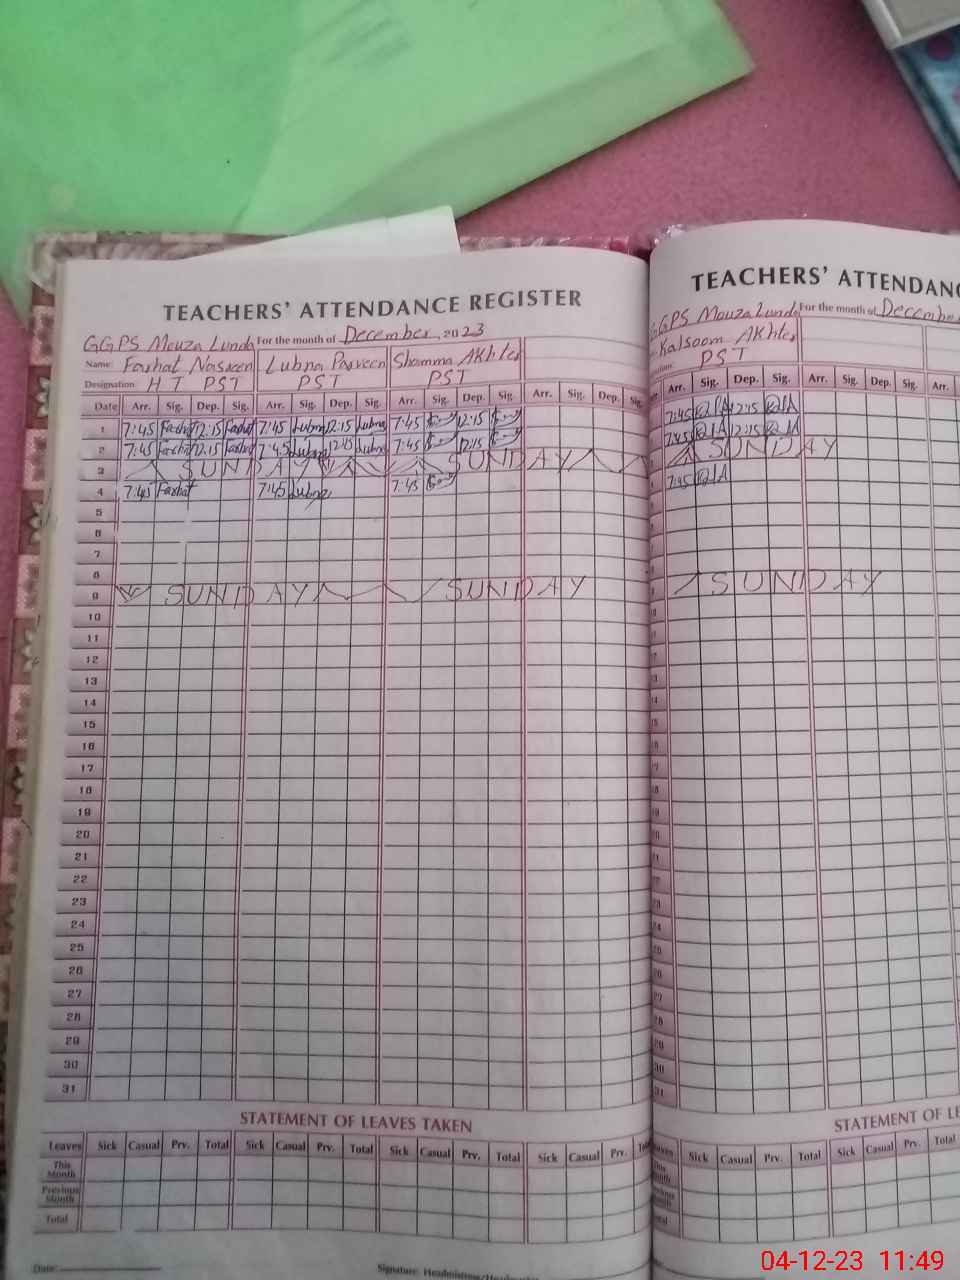 TEACHERS' ATTENDANCE REGISTER
GGPS Mouza Lunda For the month of December, 2023
Name: Farhat Nasreen Lubna Parveen Shamma Akhter
Designation: H T PST PST PST
Date Arr. Sig. Dep. Sig. Arr. Sig. Dep. Sig. Arr. Sig. Dep. Sig. Arr. Sig. Dep. Sig.
1 7:45 Farhat 12:15 Farhat 7:45 Lubna 12:15 Lubna 7:45 12:15
2 7:45 Farhat 12:15 Farhat 7:45 Lubna 12:15 Lubna 7:45 12:15
3 SUNDAY SUNDAY
4 7:45 Farhat 7:45 Lubna 7:45
5
6
7
8
9 SUNDAY SUNDAY
10
11
12
13
14
15
16
17
18
19
20
21
22
23
24
25
26
27
28
29
30
31
STATEMENT OF LEAVES TAKEN
Leaves Sick Casual Prv. Total Sick Casual Prv. Total Sick Casual Prv. Total Sick Casual Prv.
This Month
Previous Month
Total
Date:
Signature: Headmistress/Headmaster
TEACHERS' ATTENDANC
GGPS Mouza Lunda For the month of December
Kalsoom Akhter
PST
Arr. Sig. Dep. Sig. Arr. Sig. Dep. Sig. Arr.
7:45 12:15
7:45 12:15
SUNDAY
7:45
SUNDAY
STATEMENT OF LE
Sick Casual Prv. Total Sick Casual Prv. Total
Month
Month
04-12-23 11:49